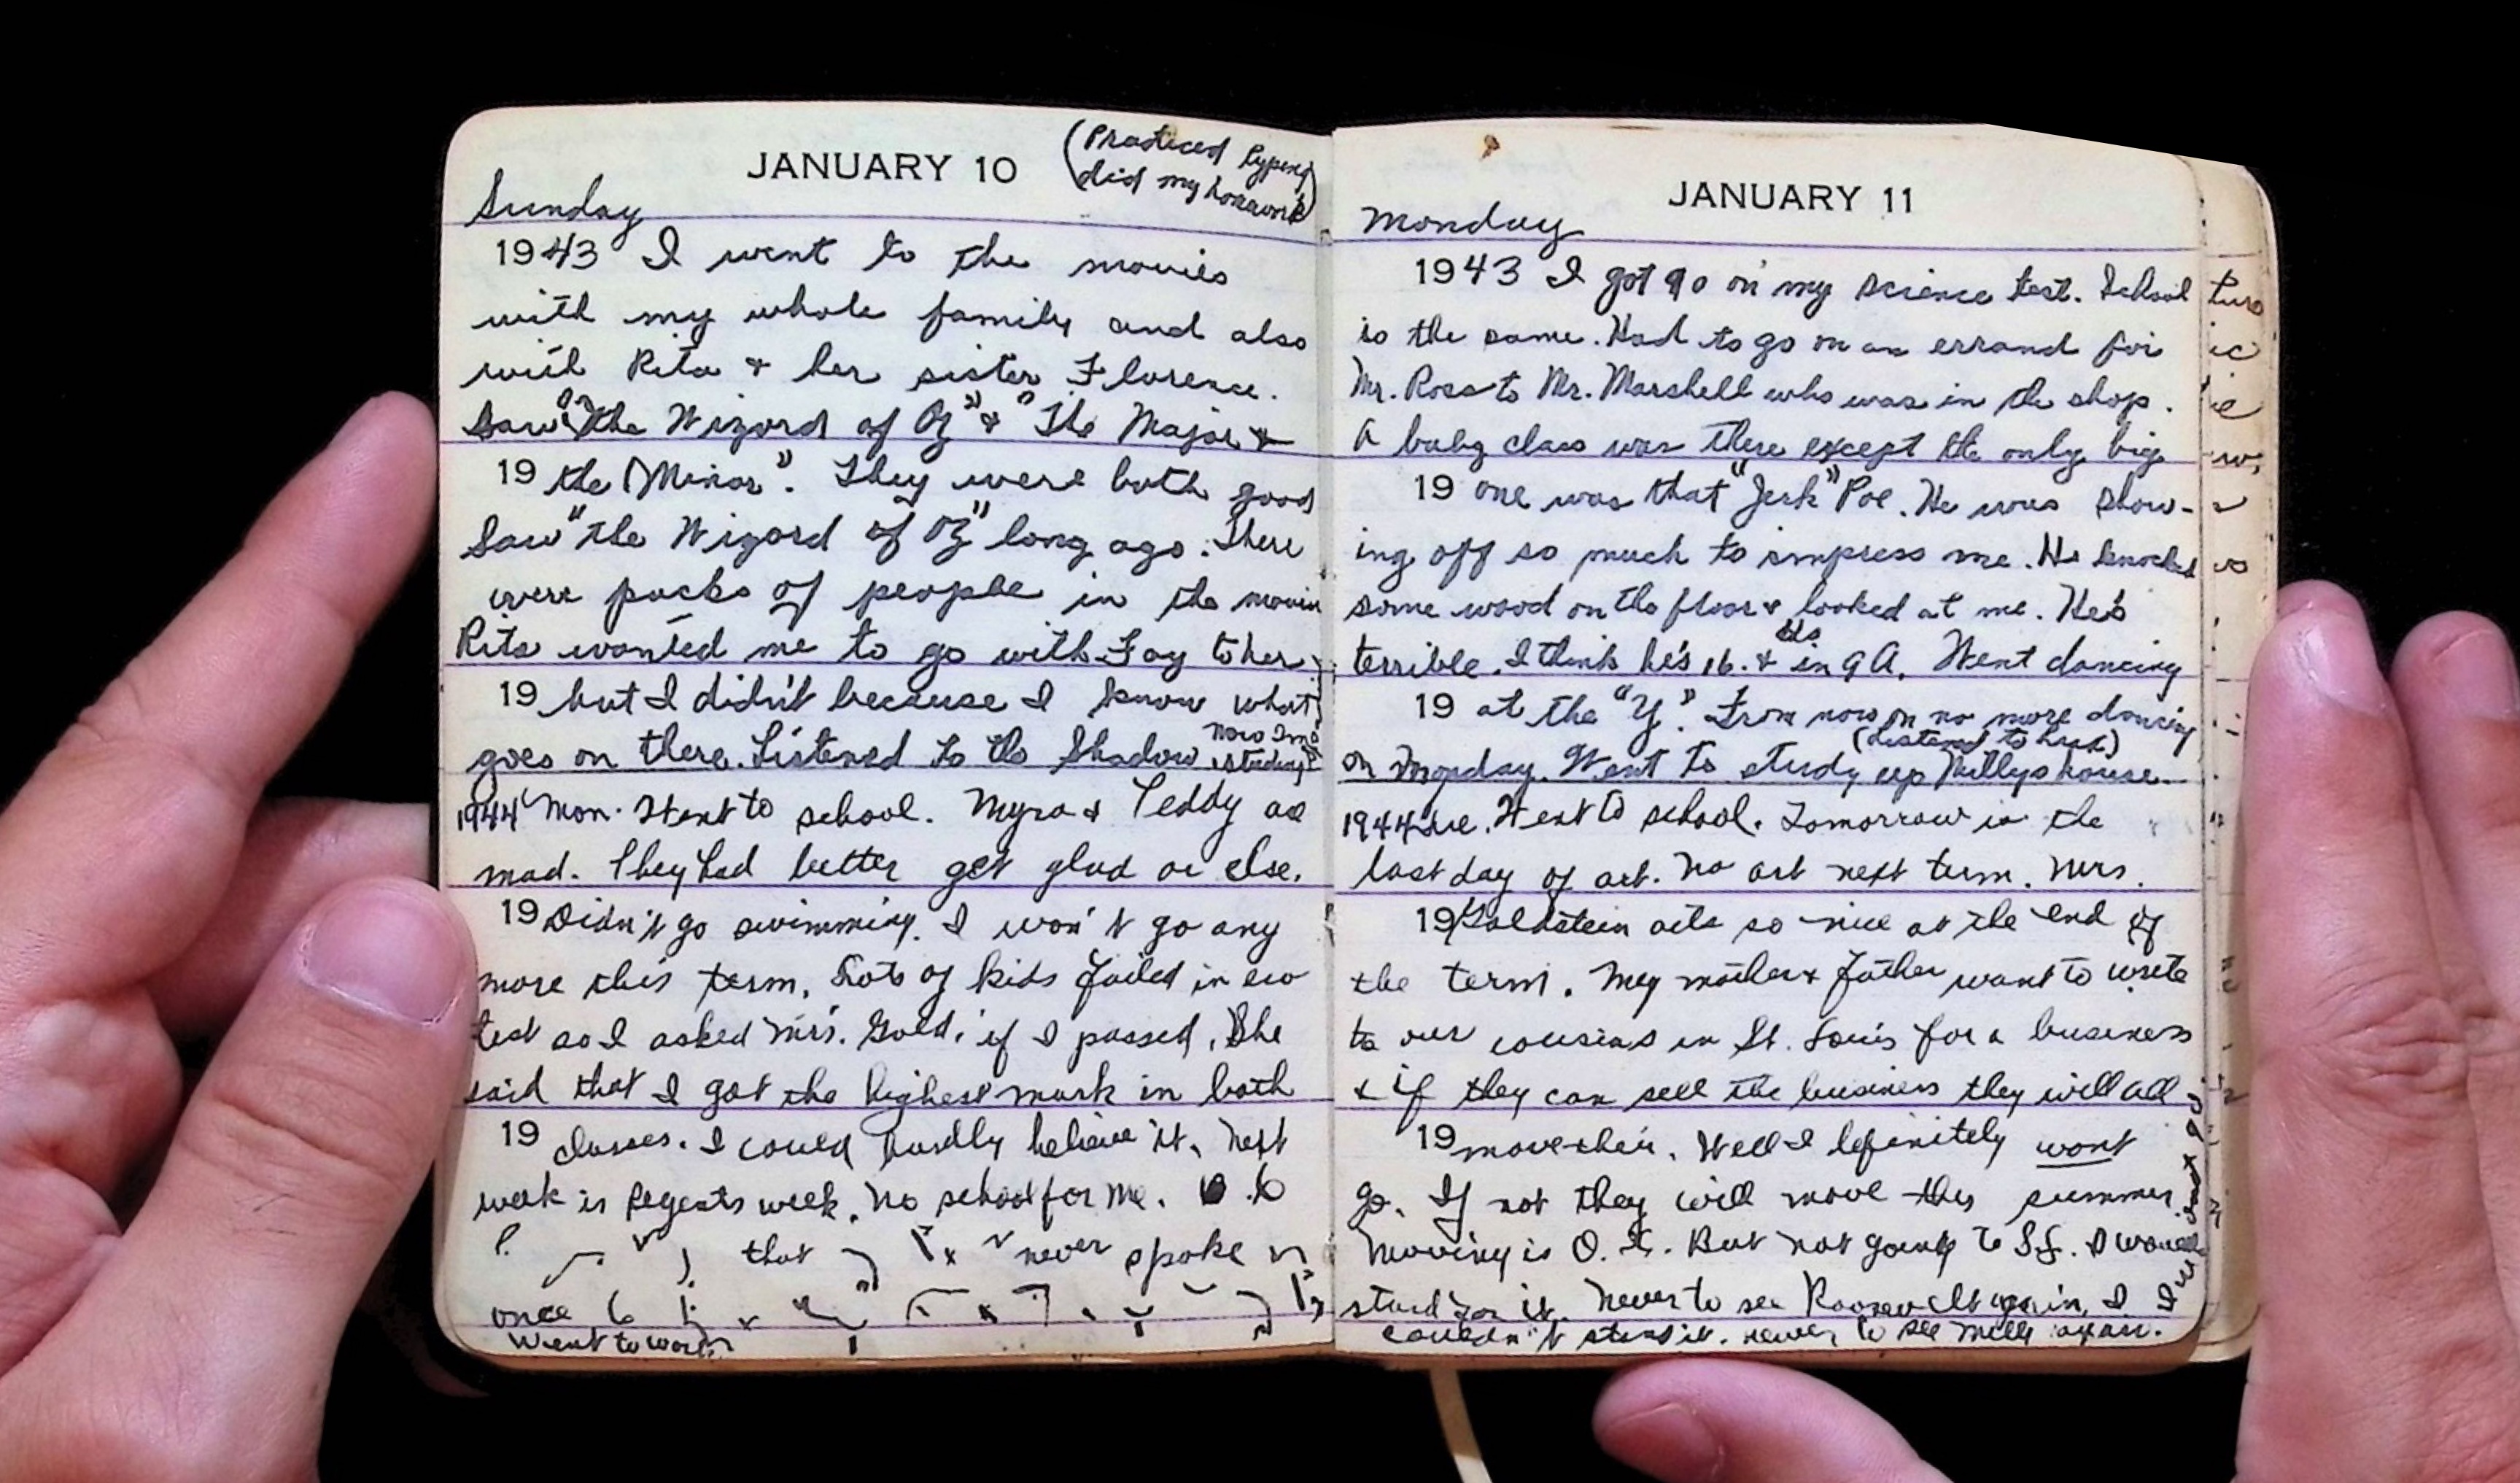 JANUARY 10
(Practiced typing
did my homework)
Sunday
1943 I went to the movies
with my whole family and also
with Rita & her sister Florence.
Saw "the Wizard of Oz" & "The Major &
19 the Minor". They were both good
Saw "the Wizard of Oz" long ago. There
were packs of people in the movie
Rita wanted me to go with Fay to her
19 but I didn't because I know what
goes on there. Listened to the Shadow
Now I'm
studying
1944 Mon. Went to school. Myra & Teddy are
mad. They had better get glad or else.
19 Didn't go swimming. I won't go any
more this term. Lots of kids failed in eco
test so I asked Mrs. Gold. if I passed. She
said that I got the highest mark in both
19 classes. I could hardly believe it. Next
week is Regents week. No school for me.
that never spoke
once
Went to work
JANUARY 11
Monday
1943 I got 90 on my science test. School
is the same. Had to go on an errand for
Mr. Ross to Mr. Marshell who was in the shop.
A baby class was there except the only big
19 one was that "Jerk" Poe. He was show-
ing off so much to impress me. He knocked
some wood on the floor & looked at me. He's
terrible. I think he's 16. & in 9A. Went dancing
19 at the "Y". From now on no more dancing
on Monday. Went to study up Millys house.
1944 Tue. Went to school. Tomorrow is the
last day of art. No art next term. Mrs.
19 Goldstein acts so nice at the end of
the term. My mother & father want to write
to our cousins in St. Louis for a business
& if they can sell the business they will all
19 move their. Well I definitely wont
go. If not they will move this summer.
Moving is O.K. But not going to S.L. I would
stand for it. Never to see Roosevelt again, I
couldn't stand it. never to see Milly again.
I just